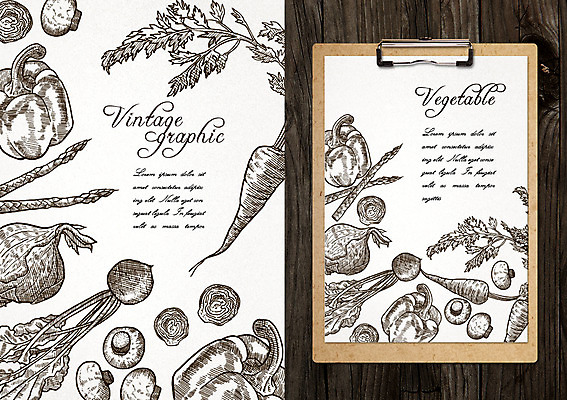 Vintage
graphic
Lorem ipsum dolor sit
amet consectetur adipisc
ing elit Nulla eget con
sequat ligula In feugiat
velit ac massa tempor
Vegetable
Lorem ipsum dolor sit
amet consectetur adipisc
ing elit Nulla eget con
sequat ligula In feugiat
velit ac massa tempor
sagittis